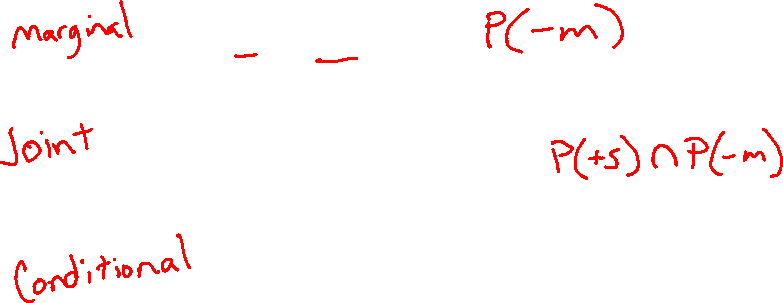 marginal – — P(-m)
Joint P(+s) ∩ P(-m)
Conditional